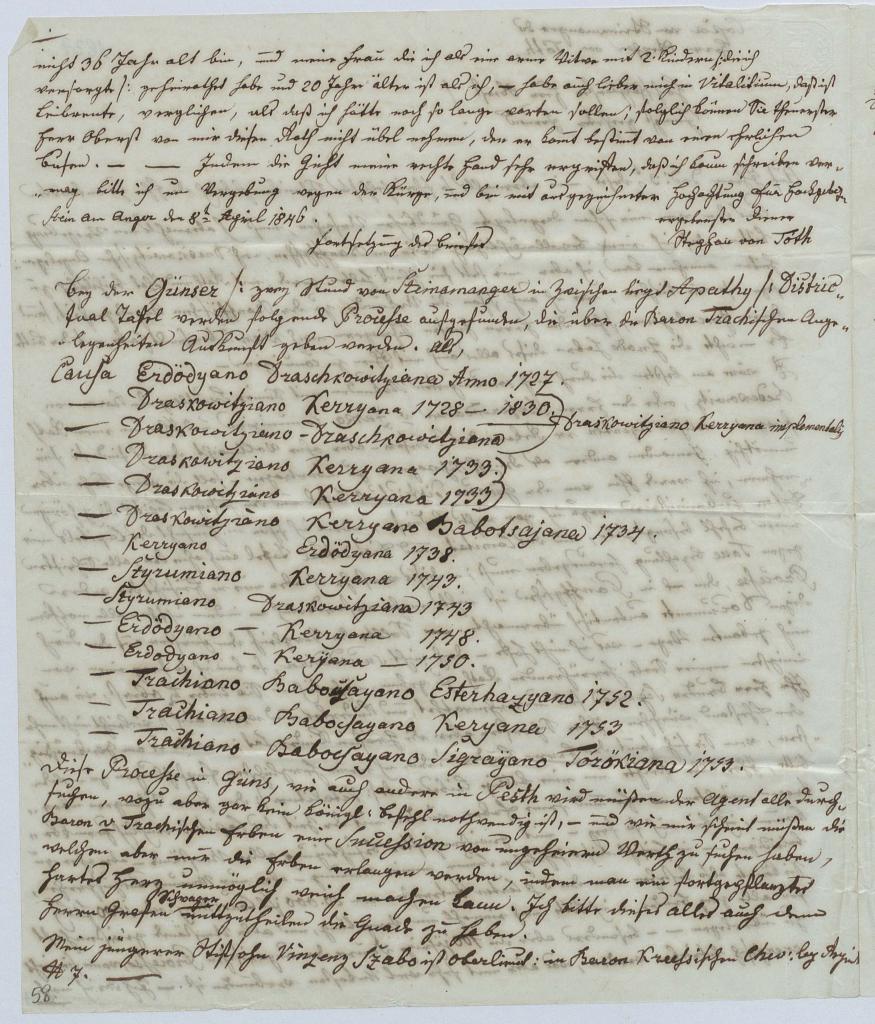 nicht 36 Jahr alt bin, und meine Frau die ich als eine arme Witwe mit 2 Kindern /: die ich
versorgte :/ geheirathet habe und 20 Jahr älter ist als ich, — habe auch lieber mich in Vitalitium, das ist
Leibrente, verglichen, als daß ich hätte noch so lange warten sollen; folglich können Sie theuerster
Herr Oberst von mir diesen Rath nicht übel nehmen, den er kommt bestimt von einen ehrlichen
busen. — — Indem die Gicht meine rechte Hand sehr ergriffen, daß ich kaum schreiben ver-
mag bitte ich um Vergebung wegen der Kürze, und bin mit ausgezeichneter Hochachtung
Stein am Anger den 8t April 1846. ergebenster Diener
Fortsetzung des briefes Stephan von Toth
bey der Günser /: zwey Stund von Steinamanger in Zwischen liegt Apathy :/ District-
tual Tafel werden folgende Processe aufgefunden, die über die Baron Trachischen Ange-
legenheiten Auskunft geben werden. Als,
Causa Erdödyano Draschkowitziana Anno 1727.
— Draskowitziano Kerryana 1728 — 1830.) Draskowitziano Kerryana
— Draskowitziano - Draschkowitziana
— Draskowitziano Kerryana 1733.)
— Draskowitziano Kerryana 1733)
— Draskowitziano Kerryano Babotsajana 1734.
— Kerryano Erdödyana 1738.
— Styrumiano Kerryana 1743.
— Styrumiano Draskowitziana 1743
— Erdödyano — Kerryana 1748.
— Erdödyano — Keryana — 1750.
— Trachiano Babocsayano Esterhazyano 1752.
— Trachiano Babocsayano Keryana 1753
— Trachiano Babocsayano Sigrayano Törökiana 1753.
Diese Processe in Güns, wie auch andere in Pesth wird müßen der Agent alle durch-
suchen, wozu aber gar kein königl: befehl nothwendig ist, — und wie mir scheint müßen die
Baron v Trachischen Erben eine Succession von ungeheuern Werth zu suchen haben,
welchen aber nur die Erben erlangen werden, indem man ein fortgepflanztes
hartes Herz unmöglich weich machen kann. Ich bitte dieses alles auch dem
Herrn Grafen Schwager mittzutheilen die Gnade zu haben.
Mein jüngerer Stifsohn Vinzenz Szabo ist Oberlieut: in Baron Kressischen Chev: leg
N 7. —
58.